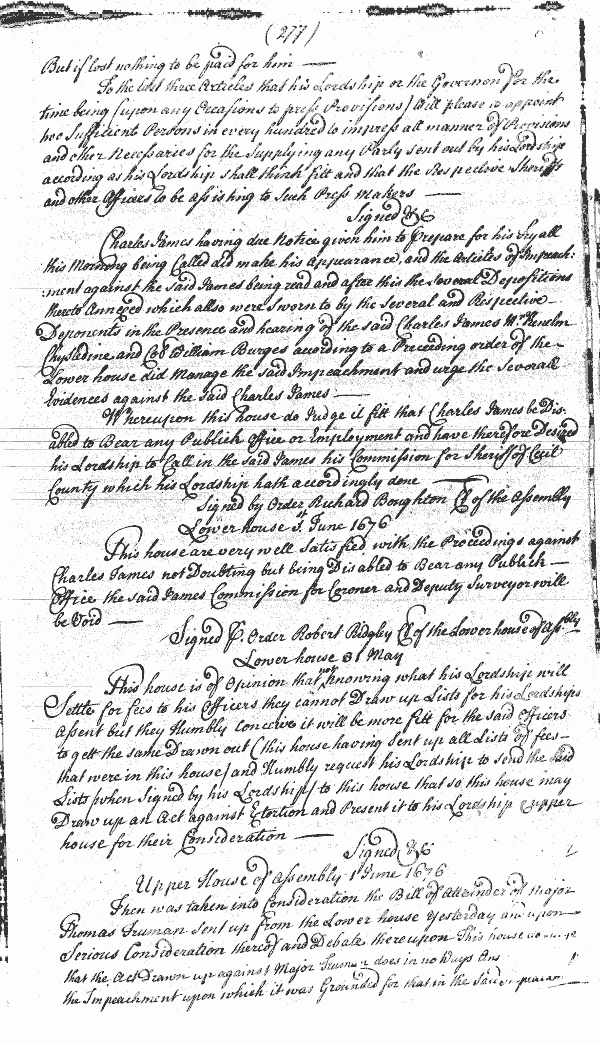 (277)
But if lost nothing to be paid for him —
To the last three Articles that his Lordship or the Governor for the
time being (upon any Occasions to press Provisions) Will please to appoint
two Sufficient Persons in every hundred to impress all manner of Provisions
and other Necessaries for the Supplying any Party sent out by his Lordship
according as his Lordship shall think fitt and that the Respective Sheriffs
and other Officers to be assisting to Such Press Makers —
Signed &c
Charles James having due Notice given him to Prepare for his tryall
this Morning being Called did make his Appearance, and the Articles of Impeach:
:ment against the Said James being read and after this the Several Depositions
thereto Annexed which allso were Sworn to by the Several and Respective
Deponents in the Presence and hearing of the Said Charles James Mr. Kenelm
Chysledine and Coll William Burges acording to a Preceding order of the
Lower house did Manage the Said Impeachment and urge the Severall
Evidences against the Said Charles James —
Whereupon this house do Judge it fitt that Charles James be Dis:
abled to Bear any Publick Office or Employment and have therefore Desired
his Lordship to Call in the Said James his Commission for Sheriff of Cecil
County which his Lordship hath accordingly done —
Signed by Order Richard Boughton Cl of the Assembly
Lower house 1st June 1676
This house are very well Satisfied with the Proceedings against
Charles James not Doubting but being Disabled to Bear any Publick —
Office the said James Commission for Coroner and Deputy Surveyor will
be Void —
Signed P. Order Robert Ridgley Cl of the Lower house of Assbly
Lower house 31 May
This house is of Opinion that not knowing what his Lordship will
Settle for fees to his Officers they cannot Draw up Lists for his Lordships
Assent but they Humbly Conceive it will be more fitt for the said Officers
to gett the same Drawn out (this house having Sent up all Lists of fees
that were in this house) and Humbly request his Lordship to Send the Said
Lists (when Signed by his Lordship) to this house that so this house may
Draw up an Act against Extortion and Present it to his Lordship upper
house for their Consideration —
Signed &c
Upper House of Assembly 1 June 1676
Then was taken into Consideration the Bill of Attainder of Major
Thomas Truman Sent up from the Lower house Yesterday and upon
Serious Consideration thereof and Debate thereupon This house
that the Act Drawn up against Major Truman does in no Ways Ans
the Impeachment upon which it was Grounded for that in the Said